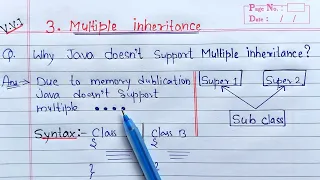 V.V.I
Page No. :
Date : / /
3. Multiple inheritance
Q. Why Java doesn't Support Multiple Inheritance?
Ans → Due to memory dublication
Java doesn't Support
multiple ••••
Super 1
Super 2
Sub class
Syntax:- Class | Class B
{ {
}